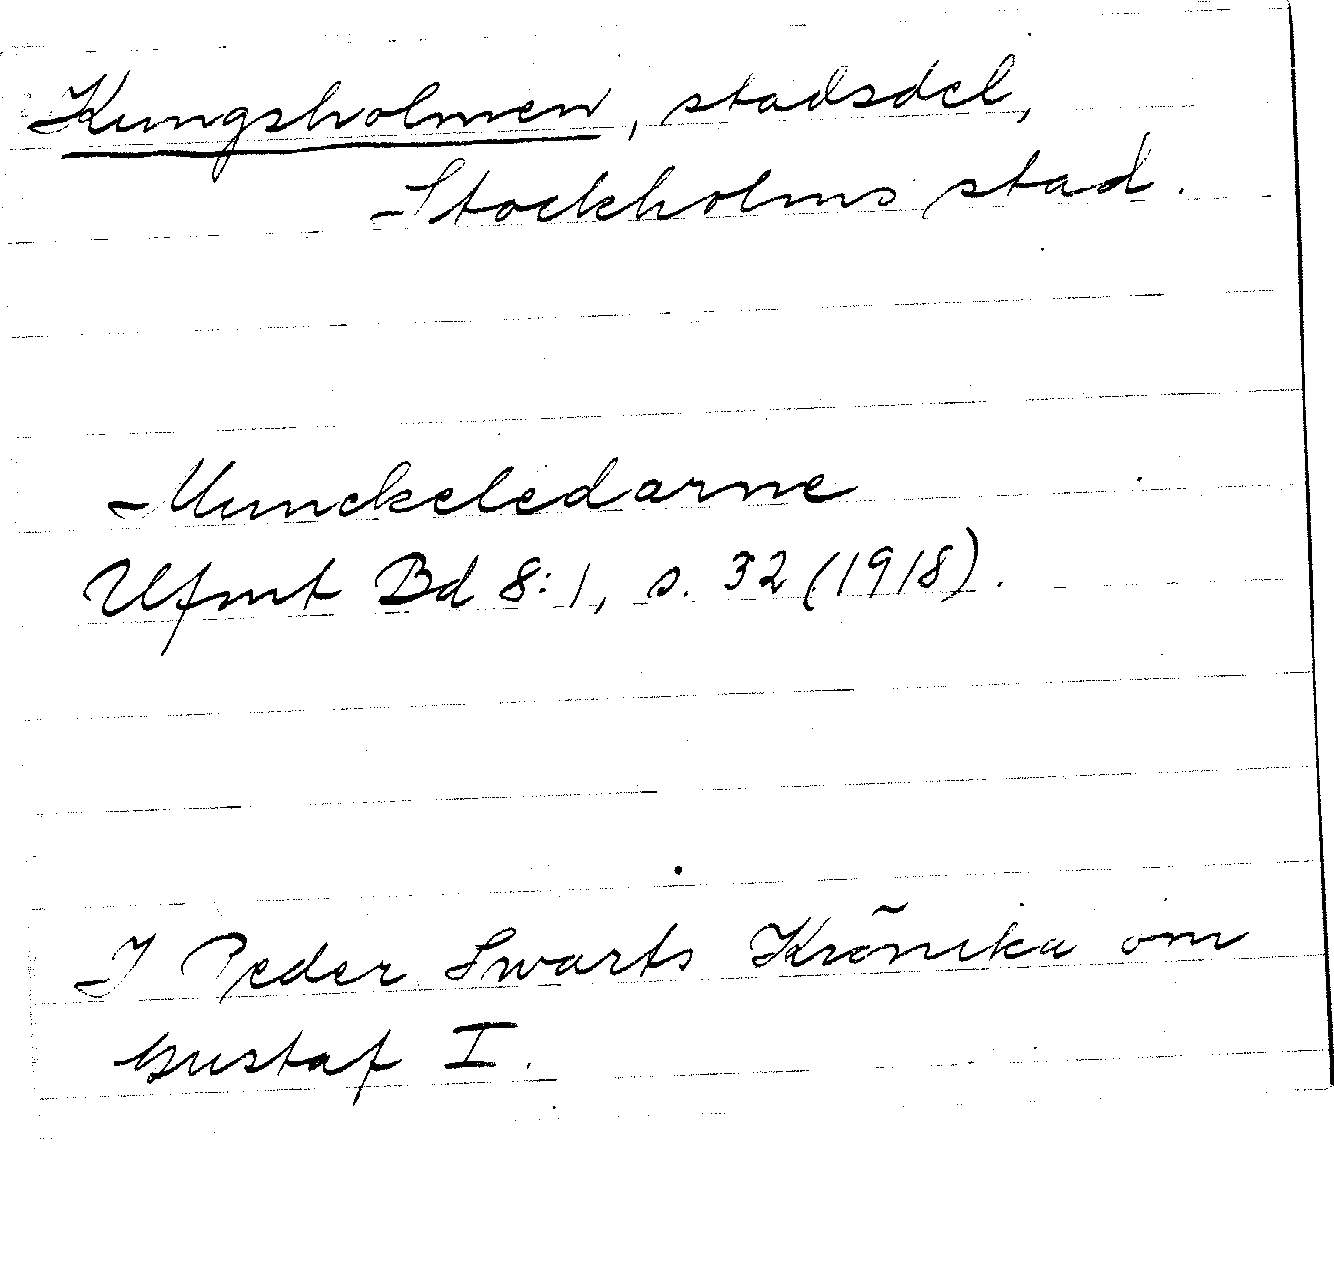 Kungsholmen, stadsdel,
Stockholms stad.
Munckeledarne
Ufmt Bd 8:1, s. 32 (1918).
I Peder Swarts Krönika om
Gustaf I.